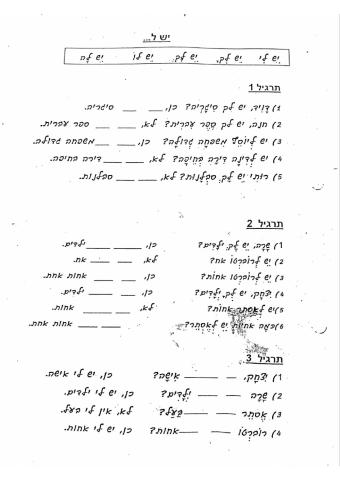 יש ל...
יֵש לי יֵש לְךָ יֵש לָךְ יֵש לוֹ יֵש לָהּ
תרגיל 1
1) דָוִיד, יש לך סיגָריה? כן, ___ ___ סיגריה.
2) חנה, יש לך סֵפֶר עברית? לא, ___ ___ ספר עברית.
3) יש ליוֹסֵף משפּחה גדולה? כן, ___ ___ משפחה גדולה.
4) יש לדינה דירה בְּחֵיפה? לא, ___ ___ דירה בחיפה.
5) רותי יש לָךְ סבלנוּת? לא, ___ ___ סבלנות.
תרגיל 2
1) שָׂרָה, יֵש לָךְ יְלָדים? כן, ___ ___ ילדים.
2) יֵש לְרוֹבֶּרטוֹ אח? לא, ___ ___ אח.
3) יֵש לרוֹבֶּרטוֹ אחוֹת? כן, ___ ___ אחות אחת.
4) יִצחָק, יֵש לְךָ יְלָדים? כן, ___ ___ ילדים.
5) יֵש לאֶסתֵר אחוֹת? לא, ___ ___ אחות.
6) כּמה אחיות יֵש לְאֶסתֵר? ___ ___ אחות אחת.
תרגיל 3
1) יִצחָק, ___ ___ אִישָה? כן, יש לי אישה.
2) שָׂרָה ___ ___ יְלָדים? כן, יש לי ילדים.
3) אֶסתֵר ___ ___ בַּעַל? לא, אין לי בעל.
4) רוֹבֶּרטוֹ ___ ___ אחות? כן, יש לי אחות.